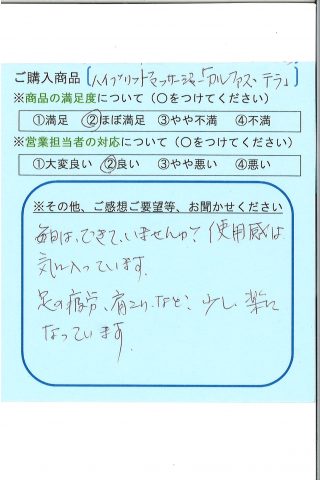 ご購入商品「ハイブリットマッサージャー「カルファス・テラ」
※商品の満足度について(○をつけてください)
①満足 ②ほぼ満足 ③やや不満 ④不満
※営業担当者の対応について(○をつけてください)
①大変良い ②良い ③やや悪い ④悪い
※その他、ご感想ご要望等、お聞かせください
毎日は、できていませんが、使用感は
気に入っています。
足の疲労、肩こりなど、少し、楽に
なっています。